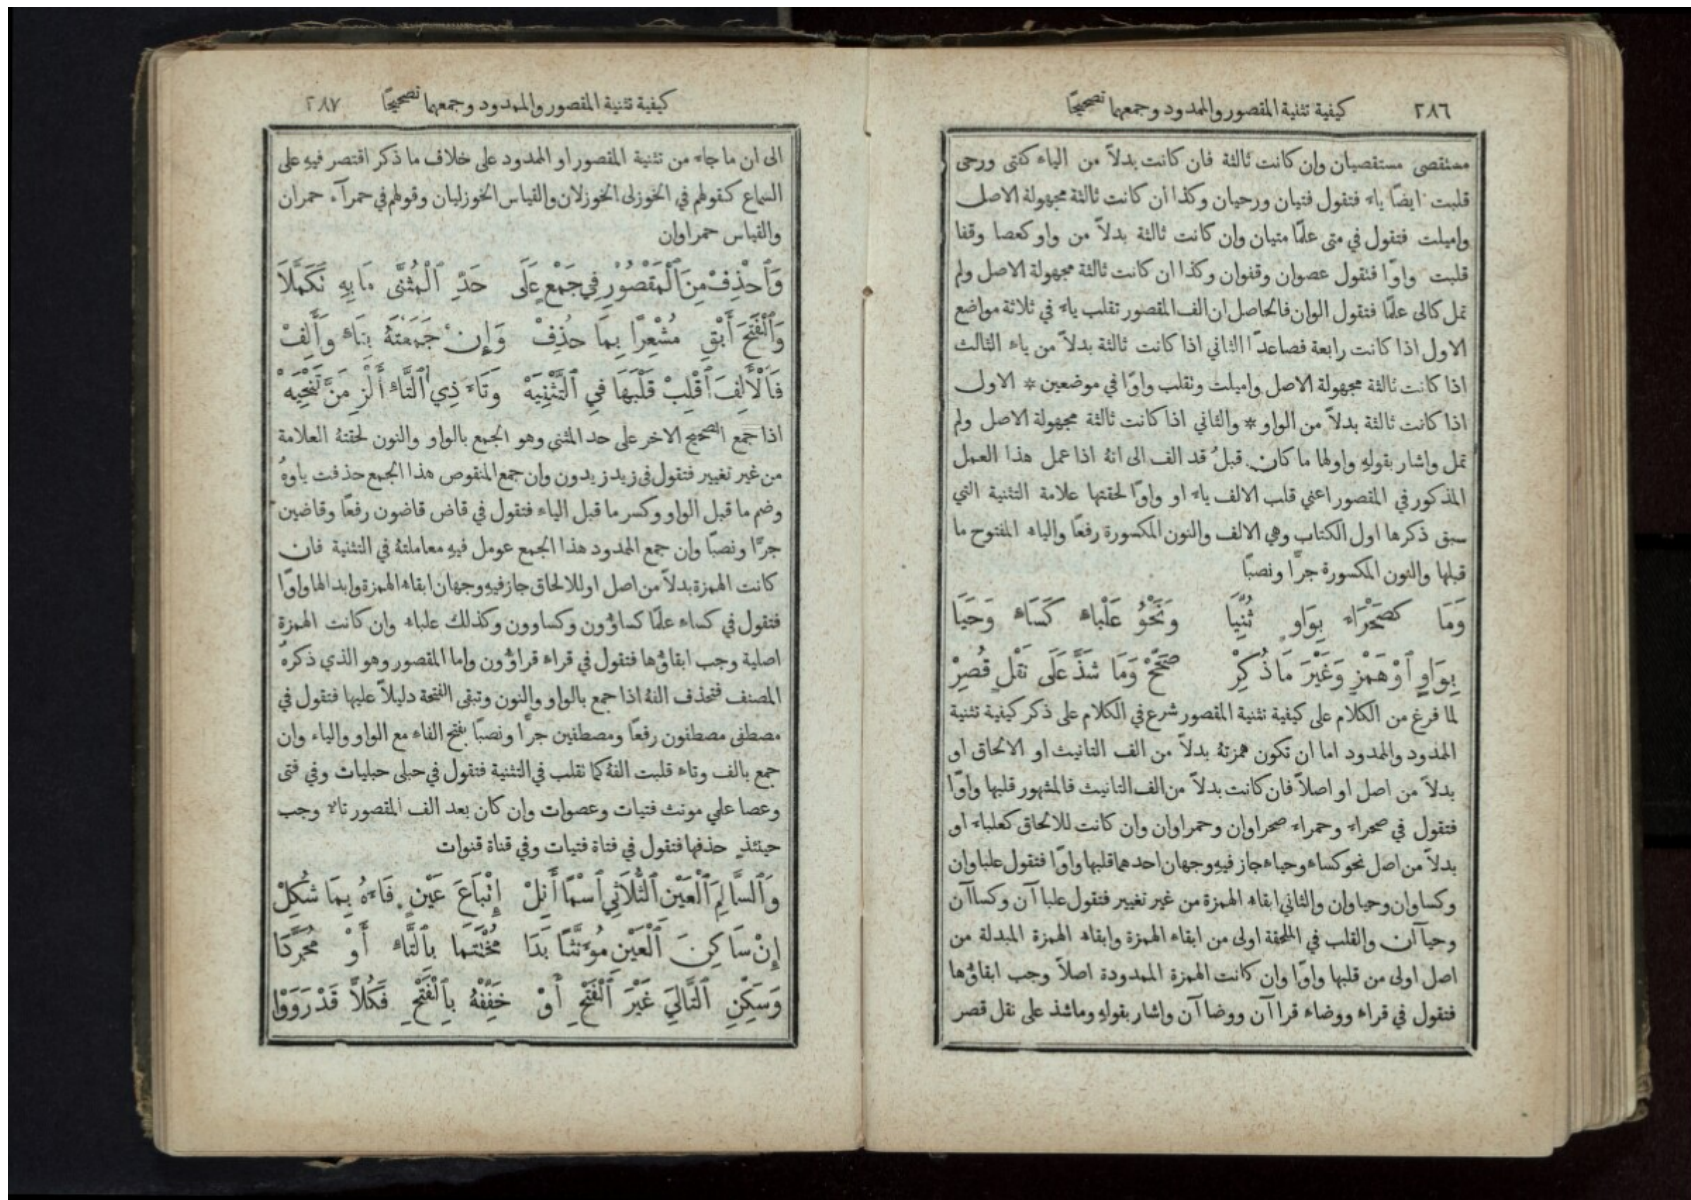 ٢٨٦
كيفية تثنية المقصور والممدود وجمعهما تصحيحًا
مستقصى مستقصيان وان كانت ثالثة فان كانت بدلاً من الياء كفتى ورحى
قلبت ايضًا ياء فتقول فتيان ورحيان وكذا ان كانت ثالثة مجهولة الاصل
واميلت فتقول في متى علمًا متيان وان كانت ثالثة بدلاً من واو كعصا وقفا
قلبت واوًا فتقول عصوان وقفوان وكذا ان كانت ثالثة مجهولة الاصل ولم
تمل كالى علمًا فتقول الوان فالحاصل ان الف المقصور تقلب ياء في ثلاثة مواضع
الاول اذا كانت رابعة فصاعدًا الثاني اذا كانت ثالثة بدلاً من ياء الثالث
اذا كانت ثالثة مجهولة الاصل واميلت وتقلب واوًا في موضعين * الاول
اذا كانت ثالثة بدلاً من الواو * والثاني اذا كانت ثالثة مجهولة الاصل ولم
تمل واشار بقوله واولها ما كان قبلُ قد الف الى انهُ اذا عمل هذا العمل
المذكور في المقصور اعني قلب الالف ياء او واوًا لحقتها علامة التثنية التي
سبق ذكرها اول الكتاب وهي الالف والنون المكسورة رفعًا والياء المفتوح ما
قبلها والنون المكسورة جرًّا ونصبًا
وَمَا كَصَحْرَاءَ بِوَاوٍ ثُنِّيَا وَنَحْوُ عَلْبَاءَ كَسَاءَ وَحَيَا
بِوَاوٍ اَوْ هَمْزٍ وَغَيْرَ مَا ذُكِرْ صَحِّحْ وَمَا شَذَّ عَلَى نَقْلٍ قُصِرْ
لما فرغ من الكلام على كيفية تثنية المقصور شرع في الكلام على ذكر كيفية تثنية
الممدود والممدود اما ان تكون همزتهُ بدلاً من الف التانيث او الالحاق او
بدلاً من اصل او اصلاً فان كانت بدلاً من الف التانيث فالمشهور قلبها واوًا
فتقول في صحراء وحمراء صحراوان وحمراوان وان كانت للالحاق كعلباء او
بدلاً من اصل نحو كساء وحياء جاز فيهِ وجهان احدهما قلبها واوًا فتقول علباوان
وكساوان وحياوان والثاني ابقاء الهمزة من غير تغيير فتقول علباآن وكساآن
وحياآن والقلب في الملحقة اولى من ابقاء الهمزة وابقاء الهمزة المبدلة من
اصل اولى من قلبها واوًا وان كانت الهمزة الممدودة اصلاً وجب ابقاؤها
فتقول في قراء ووضاء قراآن ووضاآن واشار بقولهِ وما شذ على نقل قصر
كيفية تثنية المقصور والممدود وجمعهما تصحيحًا
٢٨٧
الى ان ما جاء من تثنية المقصور او الممدود على خلاف ما ذكر اقتصر فيهِ على
السماع كقولهم في الخوزلى الخوزلان والقياس الخوزليان وقولهم في حمرآء حمران
والقياس حمراوان
وَاَحْذِفْ مِنَ اَلْمَقْصُوْرِ فِي جَمْعٍ عَلَى حَدِّ اَلْمُثَنَّى مَا بِهِ تَكَمَّلَا
وَاَلْفَتْحَ أَبْقِ مُشْعِرًا بِمَا حُذِفْ وَإِنْ جَمَعْتَهُ بِتَاءٍ وَأَلِفْ
فَاَلْأَلِفَ اَقْلِبْ قَلْبَهَا فِي اَلْتَّثْنِيَهْ وَتَاءَ ذِي اَلتَّاءِ أَلْزِمَنَّ تَنْحِيَهْ
اذا جمع الصحيح الاخر على حد المثنى وهو الجمع بالواو والنون لحقتهُ العلامة
من غير تغيير فتقول في زيد زيدون وان جمع المنقوص هذا الجمع حذفت ياوهُ
وضم ما قبل الواو وكسر ما قبل الياء فتقول في قاض قاضون رفعًا وقاضين
جرًّا ونصبًا وان جمع الممدود هذا الجمع عومل فيهِ معاملتهُ في التثنية فان
كانت الهمزة بدلاً من اصل او للالحاق جاز فيهِ وجهان ابقاء الهمزة وابدالها واوًا
فتقول في كساء علمًا كساؤون وكساوون وكذلك علباء وان كانت الهمزة
اصلية وجب ابقاؤها فتقول في قراء قراؤون واما المقصور وهو الذي ذكرهُ
المصنف فتحذف الفهُ اذا جمع بالواو والنون وتبقى الفتحة دليلاً عليها فتقول في
مصطفى مصطفون رفعًا ومصطفين جرًّا ونصبًا بفتح الفاء مع الواو والياء وان
جمع بالف وتاء قلبت الفهُ كما تقلب في التثنية فتقول في حبلى حبليات وفي فتى
وعصا علي مونث فتيات وعصوات وان كان بعد الف المقصور تاء وجب
حينئذٍ حذفها فتقول في فتاة فتيات وفي قناة قنوات
وَاَلسَّالِمِ اَلْعَيْنِ اَلثُّلَاثِي اَسْمًا أَنِلْ إِتْبَاعَ عَيْنٍ فَاءَهُ بِمَا شُكِلْ
إِنْ سَاكِنَ اَلْعَيْنِ مُؤَنَّثًا بَدَا مُخْتَتَمًا بِاَلتَّاءِ أَوْ مُجَرَّدَا
وَسَكِّنِ اَلتَّالِيَ غَيْرَ اَلْفَتْحِ أَوْ خَفِّفْهُ بِاَلْفَتْحِ فَكُلًّا قَدْ رَوَوْا